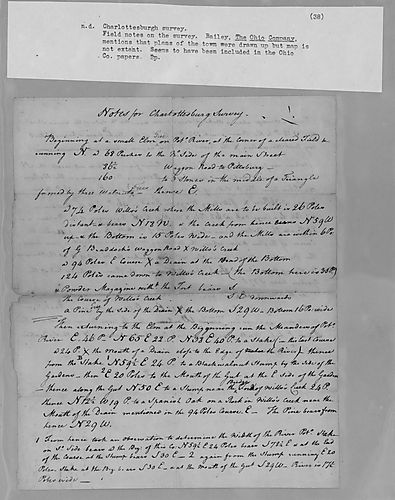 (38)
n.d. Charlottesburgh survey.
Field notes on the survey. Bailey, The Ohio Company,
mentions that plans of the town were drawn up but map is
not extant. Seems to have been included in the Ohio
Co. papers. 2p.
Notes for Charlottesburg Survey.
Beginning at a small Elm on Pot. River, at the corner of a cleared Field &
running N. 68 Perches to the N. Side of the main Street
36½ Waggon Road to Pittsburg
160 to 3 Stones in the middle of a Triangle
formed by three thence E.
274 Poles Wills's Creek where the Mills are to be built is 26 Poles
distant & bears N 12 W, & the Creek from thence bears N 39 W
up & the Bottom is 15 Poles Wide and the Mills are within 6 Po.
of G. Braddock's Waggon Road X Wills's Creek
294 Poles E Course X a Drain at the Head of the Bottom
124 Poles came down to Wills's Creek The Bottom here is
a Powder Magazine with the Fort bears S
the Course of Wills's Creek S E downwards
a Pine by the Side of the Drain X the Bottom S 29 W Bottom 16 Po. wide
Then returning to the Elm at the Beginning run the Meanders of Pot.
River E. 46 P. N 65 E 22 P. N 33 E 40 P. to a Stake in the last Course
a 24 P. X the Mouth of a Drain close to the Edge of the River thence
from the Stake N 59½ E 24 P. to a Black walnut Stump by the Side of the
Garden thence E 20 Poles to the Mouth of the Gut at the E Side of the Garden
thence along the Gut N 50 E to a Stump near the End of Wills's Creek 24 P.
thence N 12½ W 19 P. to a Spanish Oak on a Point in Wills's Creek near the
Mouth of the Drain mentioned in the 94 Poles Course E The Pine bears from
hence N 29 W.
1 From hence took an observation to determine the Width of the River Pot. Stake
on S. Side bears at the Beg. of this Co. N 59½ E 24 Poles bears S 72½ E & at the End
of the Course at the Stump bears S 30 E 2 again from the Stump running E 20
Poles Stake at the Beg. bears S 30 E & at the Mouth of the Gut S 29 W River is 17½
Poles wide